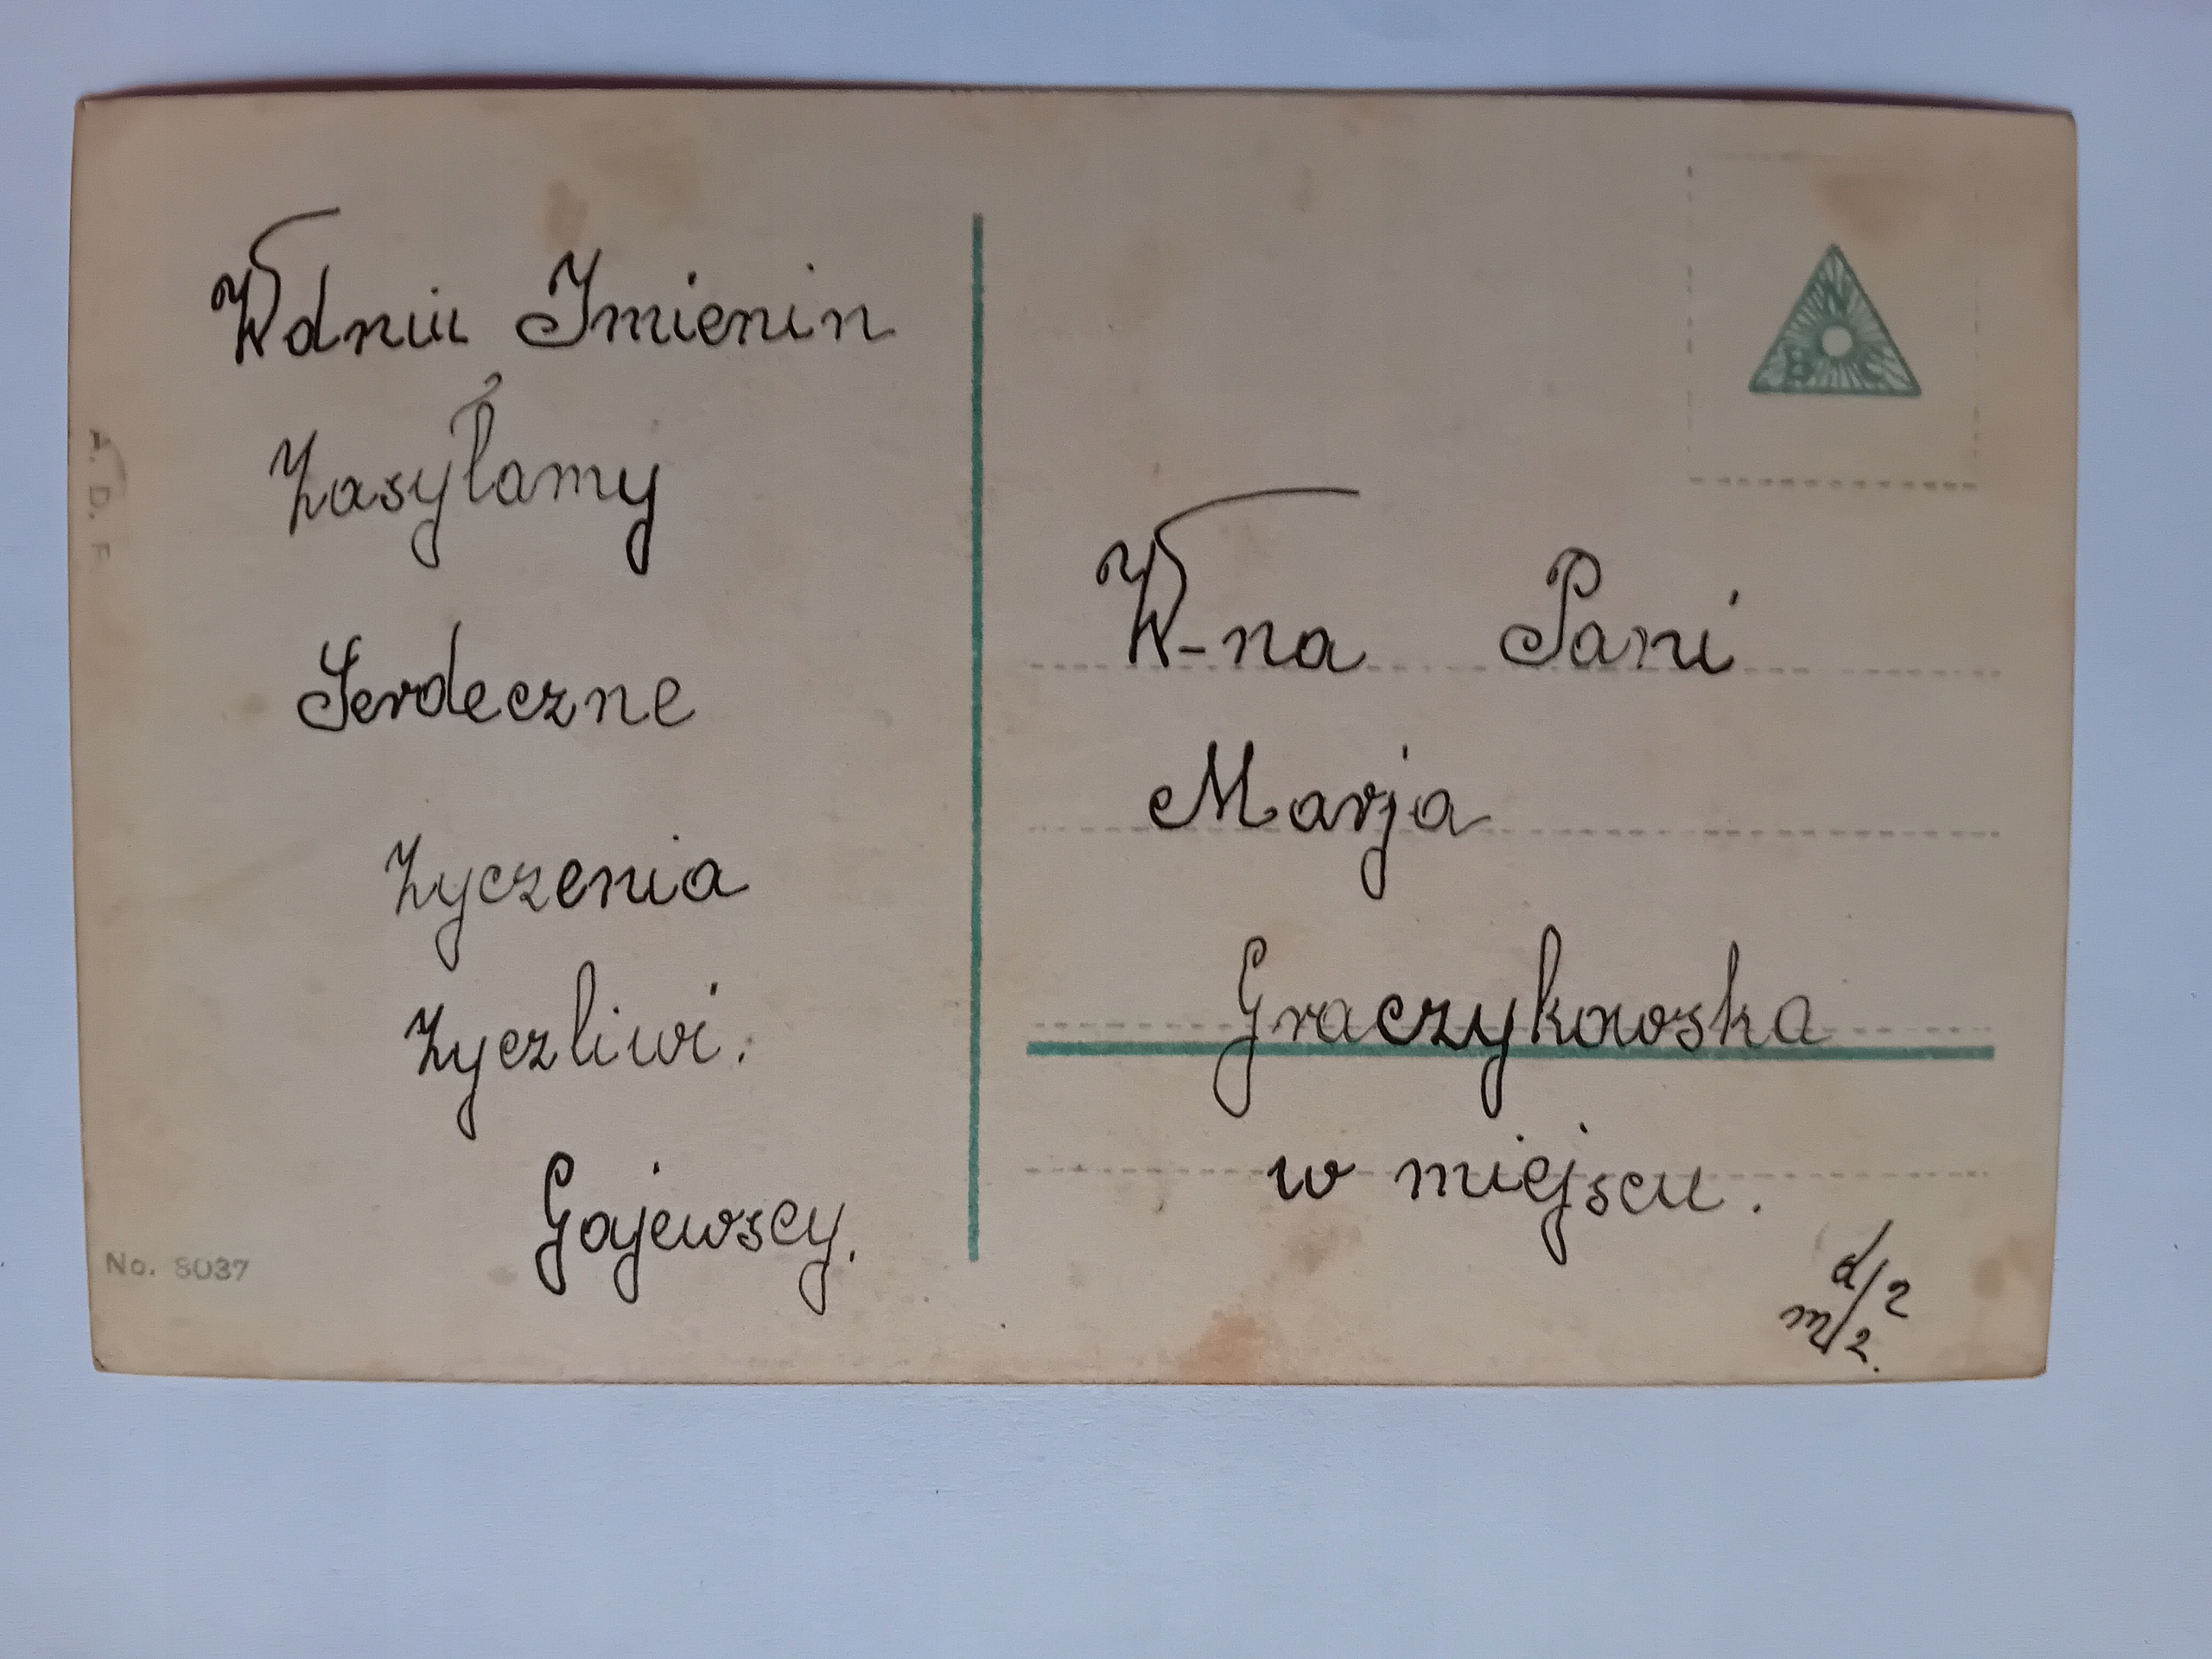 W dniu Imienin
Zasyłamy
Serdeczne
Zyczenia
Zyczliwi.
Gajewscy.
W-na Pani
Marja
Graczykowska
w miejscu.
d/2
m/2.
No. 8037
A. D. F.
N
B G